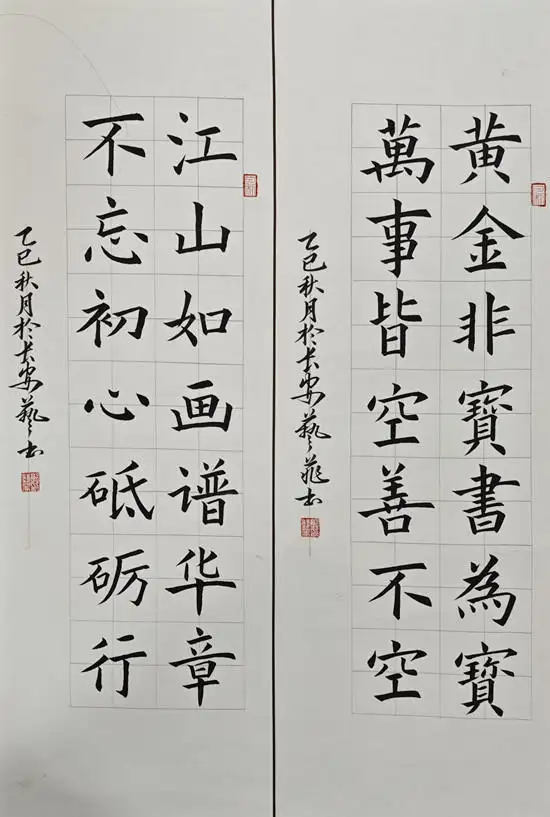 黄金非寶書為寶
萬事皆空善不空
乙巳秋月於长安藝菲书
江山如画谱华章
不忘初心砥砺行
乙巳秋月於长安藝书